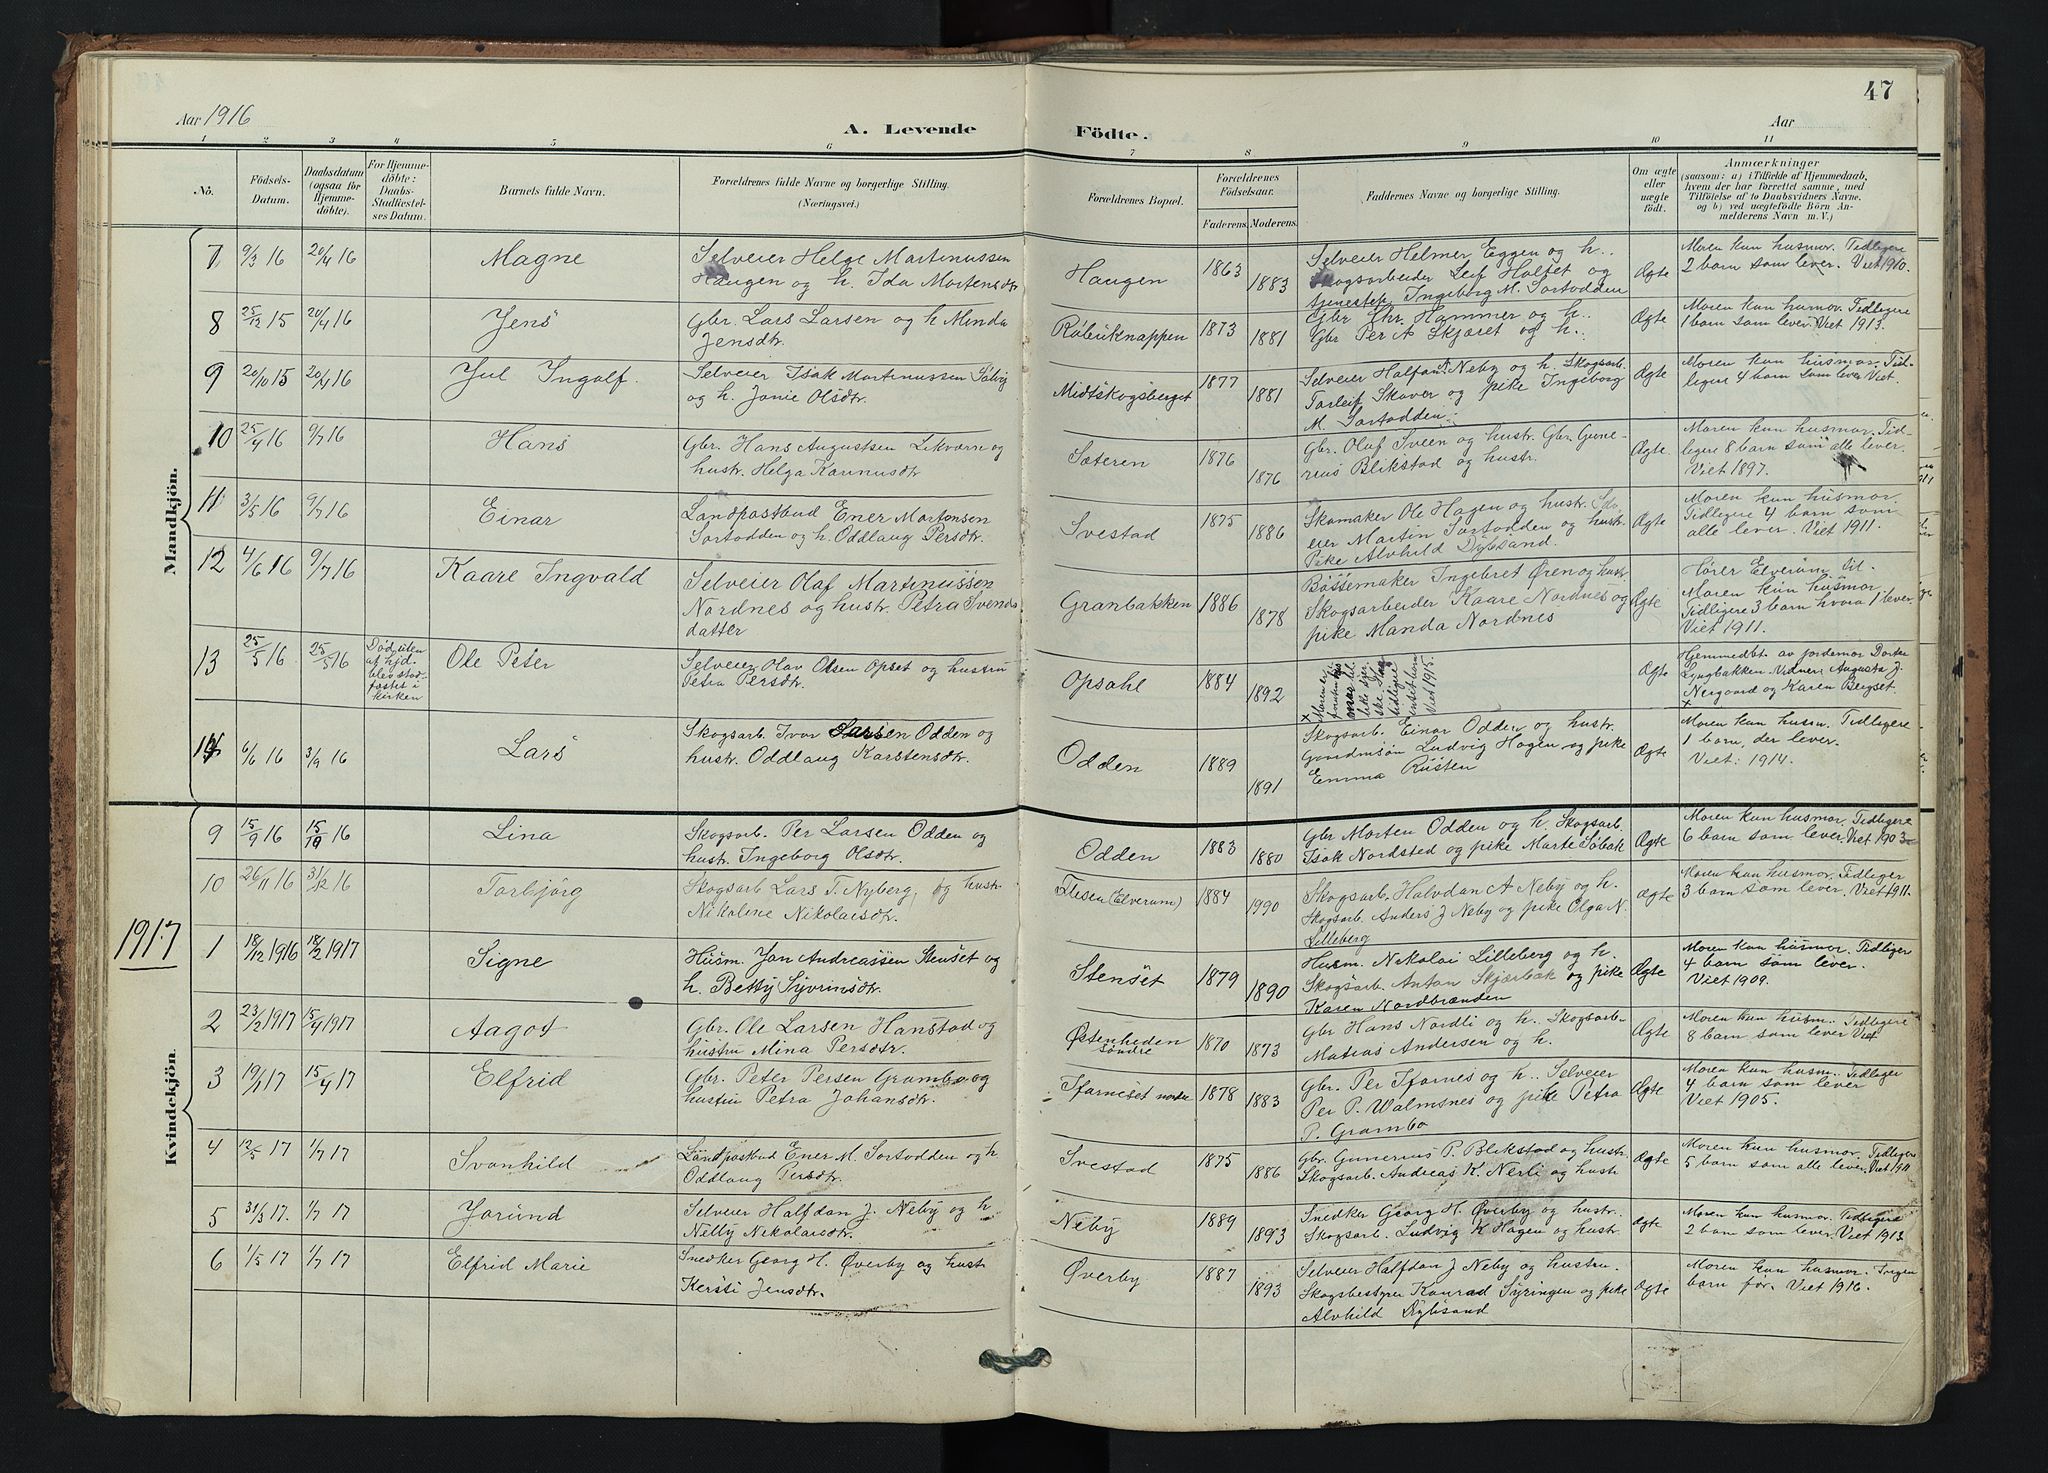 47
Aar 1916
A. Levende
Födte.
Aar
1 2 3 4 5 6 7 8 9 10 11
No.
Födsels-
Datum.
Daabsdatum
(ogsaa for
Hjemme-
döbte).
For Hjemme-
döbte:
Daabs-
Stadfæstel-
ses Datum.
Barnets fulde Navn.
Forældrenes fulde Navne og borgerlige Stilling.
(Næringsvei.)
Forældrenes Bopæl.
Forældrenes
Födselsaar.
Faderens. Moderens.
Faddernes Navne og borgerlige Stilling.
Om ægte
eller
uægte
födt.
Anmærkninger
(saasom: a) i Tilfælde af Hjemmedaab,
hvem der har forrettet samme, med
Tilföielse af to Daabsvidners Navne,
og b) ved uægtefödte Börn An-
melderens Navn m. V.)
Mandkjön.
7 9/3 16 20/4 16 Magne
Selveier Helge Martinussen
Haugen og h. Ida Mortensdtr
Haugen 1863 1883
Selveier Helmer Eggen og h..
Skogsarbeider Leif Holtet og
Ingeborg M. Sortodden
Ægte
Moren kun husmor. Tidligere
2 barn som lever. Viet 1910.
8 25/12 15 20/4 16 Jens
Gbr. Lars Larsen og h Minda
Jensdtr.
Röbuknappen 1873 1881
Gbr Chr. Hammer og h..
Gbr Per A Skjæret og h..
Ægte
Moren kun husmor. Tidligere
1 barn som lever. Viet 1913.
9 20/10 15 20/4 16 Jul Ingolf.
Selveier Isak Martinussen
og h. Jonie Olsdtr.
Midtskogsberget 1877 1881
Selveier Halfan Neby og h. Skogsarb.
Torleif Skaver og pike Ingeborg
M. Sortodden.
Ægte
Moren kun husmor. Tid-
ligere 4 barn som lever Viet.
10 25/4 16 9/7 16 Hans
Gbr. Hans Augustsen Likværn og
hustr. Helga Karinusdtr
Sæteren 1876 1876
Gbr. Oluf Sveen og hustr. Gbr. Gune-
rius Blikstad og hustr.
Ægte.
Moren kun husmor. Tid-
ligere 8 barn som alle lever.
Viet 1897.
11 3/5 16 9/7 16 Einar
Landpostbud Ener Mortensen
Sortodden og h. Oddlaug Persdtr.
Svestad 1875 1886
Skomaker Ole Hagen og hustr. Selv-
eier Martin Sortodden og hustr.
Pike Alvhild Dybsand.
Ægte
Moren kun husmor.
Tidligere 4 barn som
alle lever. Viet 1911.
12 4/6 16 9/7 16 Kaare Ingvald
Selveier Olaf Martinussen
Nordnes og hustr. Petra Svends
datter
Granbakken 1886 1878
Bössemaker Ingebret Øren og hustr
Skogsarbeider Kaare Nordnes og
pike Manda Nordnes
Ægte
Hører Elverum til.
Moren kun husmor
Tidligere 3 barn hvora 1 lever.
Viet 1911.
13 25/5 16 25/5 16
Död, uten
at hjd.
blev stad-
fæstet i
kirken
Ole Peter
Selveier Olav Olsen Opset og hustru
Petra Persdtr.
Opsahl 1884 1892
Viet 1915.
Ægte
Hjemmedbt. av jordemor Dorte
Lyngbakken. Vidner: Augusta J.
Nergaard og Karen Bergset.
14 6/6 16 3/9 16 Lars
Skogsarb. Ivar Larsen Odden og
hustr. Oddlaug Karstensdtr.
Odden 1889 1891
Skogsarb. Einar Odden og hustr.
Gaardmsön Ludvig Hagen og pike
Emma Rusten
Ægte
Moren kun husm. Tidligere
1 barn, der lever.
Viet: 1914.
Kvindekjön.
9 15/9 16 15/10 16 Lina
Skogsarb. Per Larsen Odden og
hustr. Ingeborg Olsdtr.
Odden 1883 1880
Gbr Morten Odden og h. Skogsarb.
Isak Nordsted og pike Marte Söbak
Ægte
Moren kun husmor. Tidligere
6 barn som lever. Viet 1903
10 26/11 16 31/12 16 Torbjörg
Skogsarb Lars T. Nyberg, og hustr.
Nikoline Nikolaisdtr.
Flisen (Elverum) 1884 1990
Skogsarb. Halvdan A Neby og h.
Skogsarb. Anders J Neby og pike Olga N.
Lilleberg
Ægte
Moren kun husmor. Tidligere
3 barn som lever. Viet 1911.
1917
1 18/12 1916 18/2 1917 Signe
Husm. Jon Andreassen Stenset og
h. Betty Syvrinsdtr.
Stenset 1879 1890
Husm. Nikolai Lilleberg og h.
Skogsarb. Anton Skjærbæk og pike
Karen Nordbrænden
Ægte
Moren kun husmor. Tidliger
4 barn som lever.
Viet 1909.
2 23/2 1917 15/4 1917 Aagot
Gbr. Ole Larsen Hanstad og
hustru Mina Persdtr.
Østenheden
söndre 1870 1873
Gbr Hans Nordli og h. Skogsarb.
Matias Andersen og h.
Ægte
Moren kun husm. Tidligere
8 barn som lever Viet
3 19/1 17 15/4 17 Elfrid
Gbr. Peter Persen Grambo og
hustru Petra Johansdtr.
Ifarneset nordre 1878 1883
Gbr. Per Ifarnes og h.. Selveier
Per P. Walmsnes og pike Petra
P. Grambo
Ægte
Moren kun husm. Tidliger
4 barn som lever
Viet 1905.
4 12/5 17 1/7 17 Svanhild
Landpostbud Ener M. Sortodden og h
Oddlaug Persdtr.
Svestad 1875 1886
Gbr. Gunerius P. Blikstad og hustr.
Skogsarb. Andreas K. Nerli og hustr
Ægte
Moren kun husmor. Tidligere
5 barn som alle lever. Viet 1911
5 31/3 17. 1/7 17 Jorund
Selveier Halfdan J. Neby og h.
Nelly Nikolaisdtr.
Neby 1889 1893
Snedker Georg H. Øverby og hustr.
Skogsarb. Ludvig K Hagen og hustr.
Ægte
Moren kun husmor. Tidligere
2 barn som lever. Viet 1913.
6 1/5 17 1/7 17 Elfrid Marie
Snedker Georg H. Øverby og hustr
Kersti Jensdtr.
Øverby 1887 1893
Selveier Halfdan J Neby og hustru.
Skogsbestyrer Konrad Syringen og pike
Alvhild Dybsand
Ægte
Moren kun husmor. Ingen
barn før. Viet 1916.